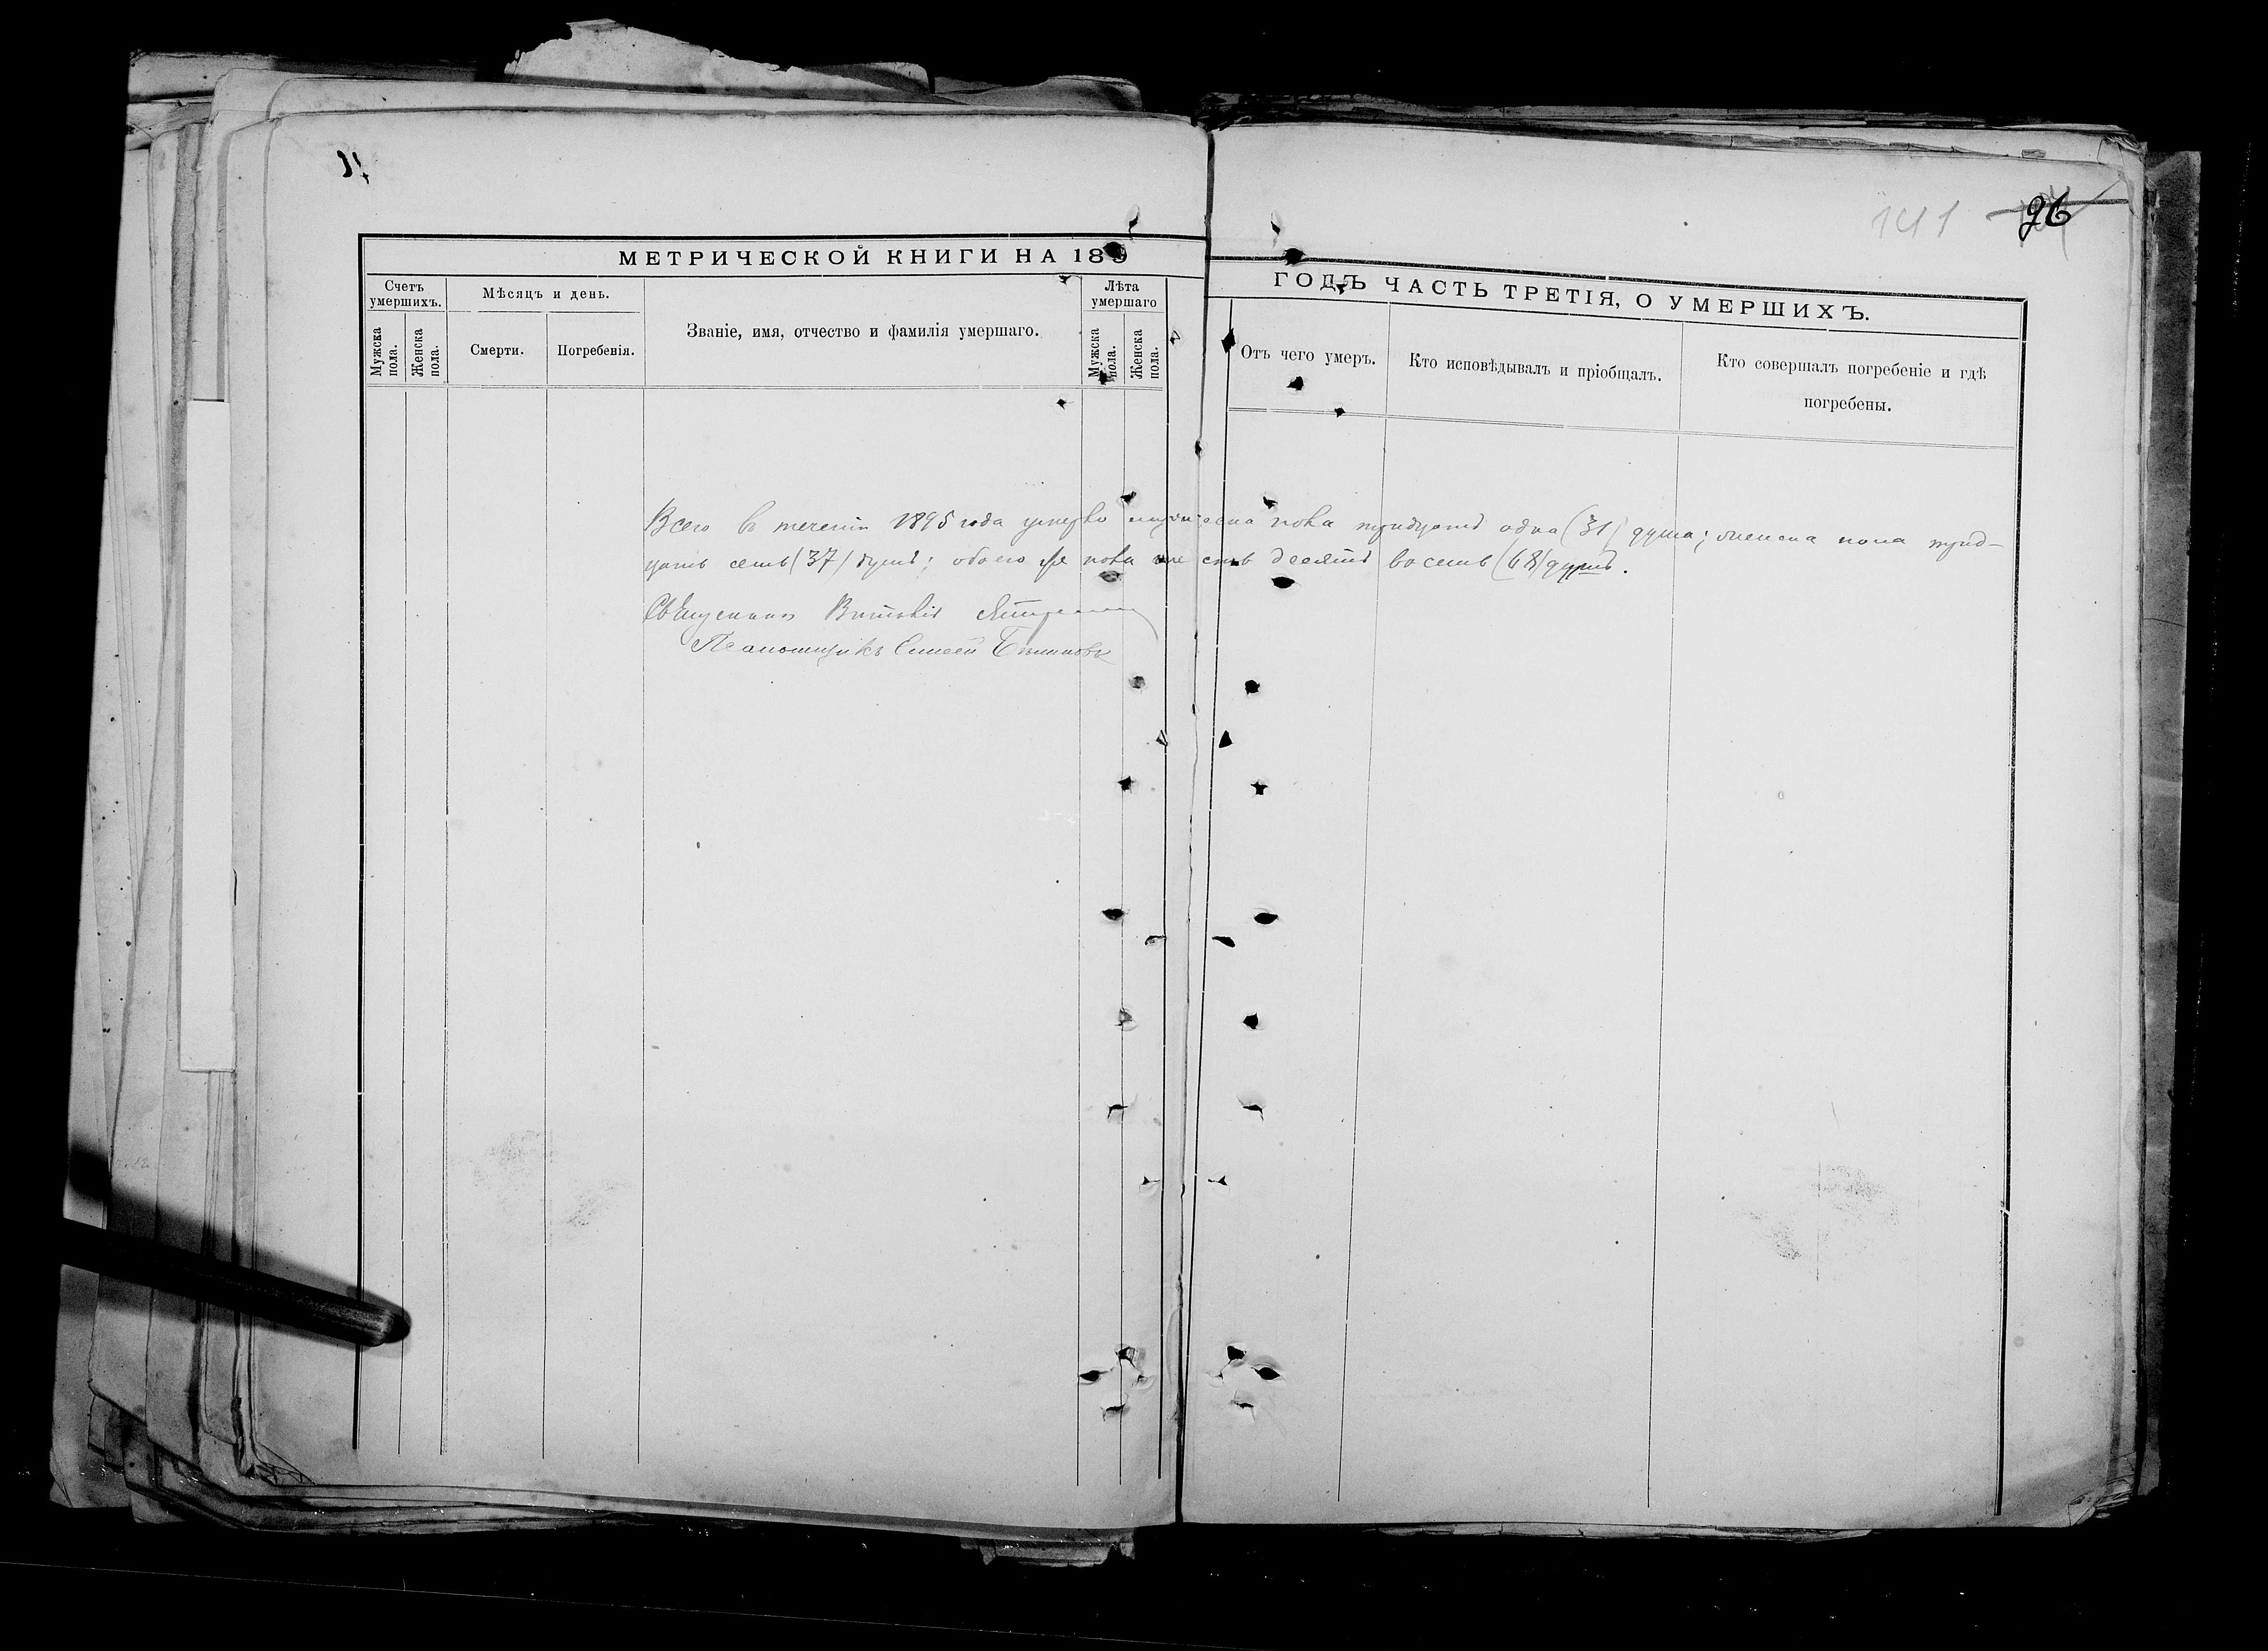 141 96
МЕТРИЧЕСКОЙ КНИГИ НА 189 ГОДЪ ЧАСТЬ ТРЕТІЯ, О УМЕРШИХЪ.
Счетъ умершихъ.
Мужска пола.
Женска пола.
Мѣсяцъ и день.
Смерти.
Погребенія.
Званіе, имя, отчество и фамилія умершаго.
Лѣта умершаго
Мужска пола.
Женска пола.
Отъ чего умеръ.
Кто исповѣдывалъ и пріобщалъ.
Кто совершалъ погребеніе и гдѣ погребены.
Всего въ теченіи 1895 года умерло мужеска пола тридцать одна (31) душа; женска пола трид-
цать семь (37) душъ; обоего же пола шестьдесятъ восемь (68) душъ.
Священникъ Виталій
Псаломщикъ Елисей